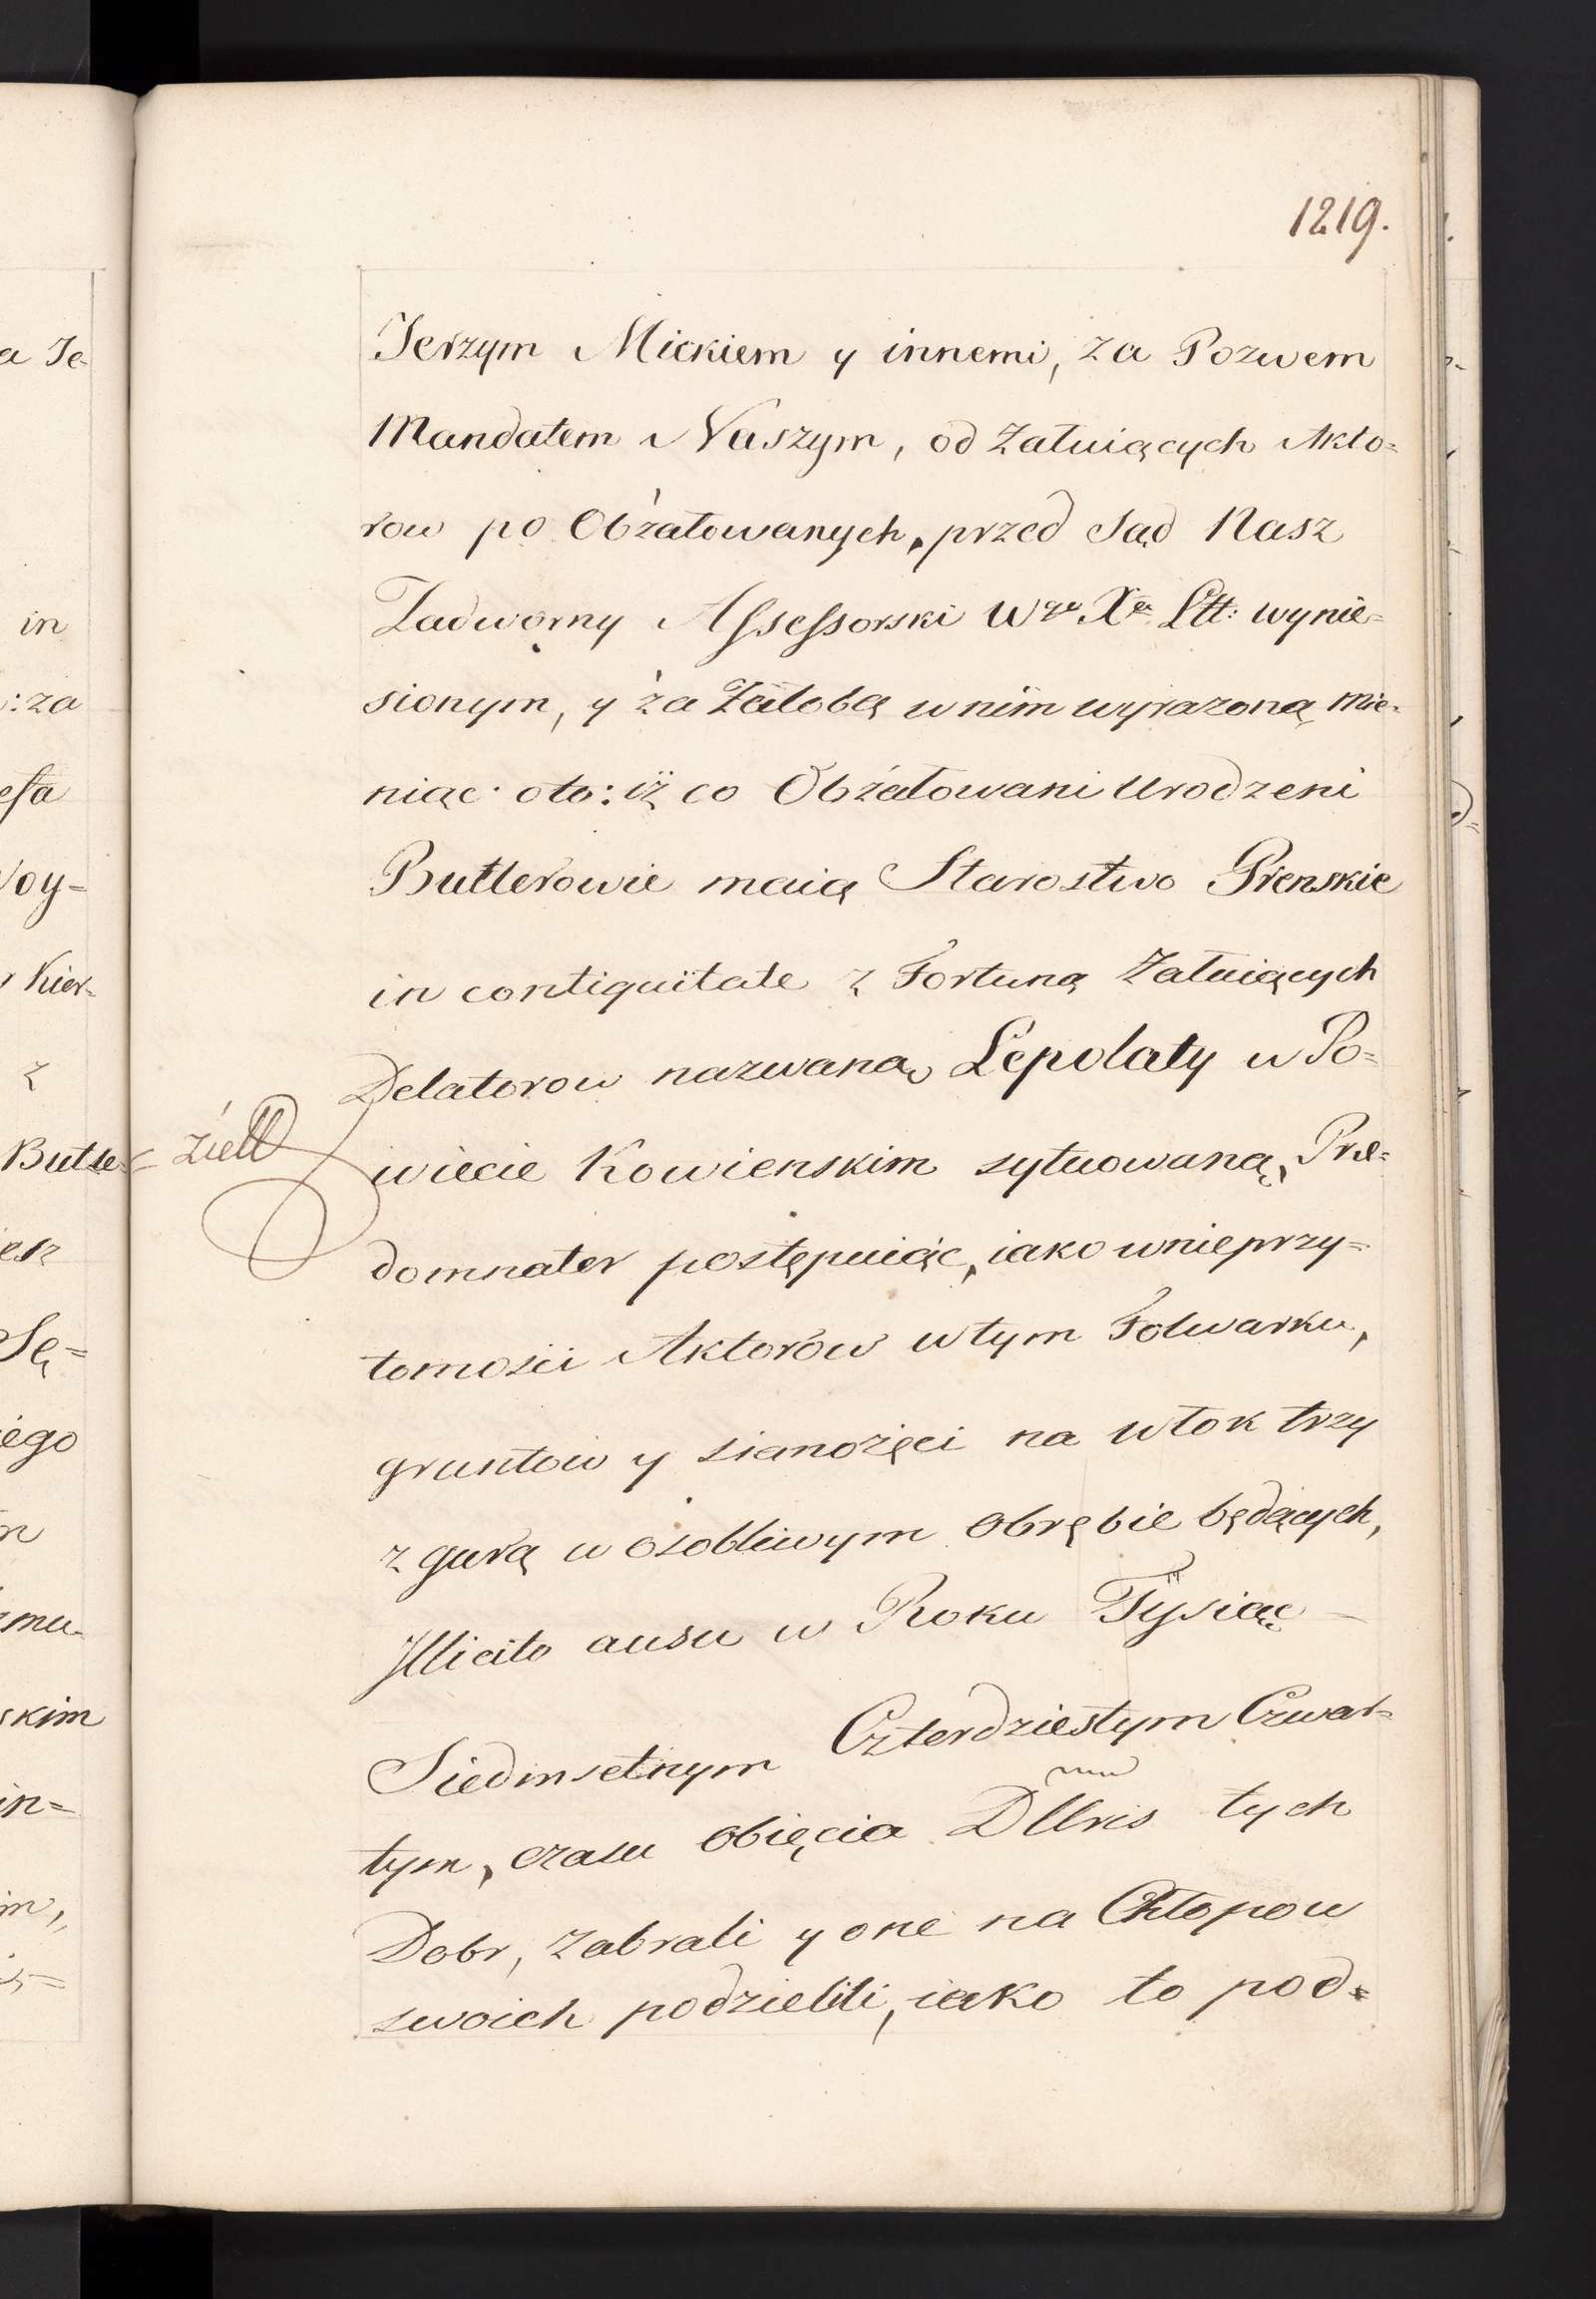 1219.
Jerzym Mickiem y innemi, za Pozwem
Mandatem Naszym, od Żałuiących Akto=
row po Obżałowanych, przed Sąd Nasz
Zadworny Assessorski Wgo Xa Litt: wynie=
sionym, y za Żałobą w nim wyrazoną mie=
niąc oto: iż co Obżałowani Urodzeni
Butlerowie maią Starostwo Prenskie
in contiguitate z Fortuną Żałuiących
Delatorow nazwaną Lepolaty w Po=
wiecie Kowienskim sytuowaną, Prae=
domnater postępuiąc, iako w nieprzy=
tomości Aktorów w tym Folwarku,
gruntow y sianożęci na włok trzy
z gurą w osobliwym obrębie będących,
Illicito ausu w Roku Tysiąc
Siedmsetnym Czterdziestym Czwar=
tym, czasu obięcia Dllris tych
Dobr, zabrali y one na Chłopow
swoich podzielili, iako to pod=
a Je=
in
: za
essa
Woy=
Kier=
z
Butle=
Sę=
iego
mu=
skim
in=
im,